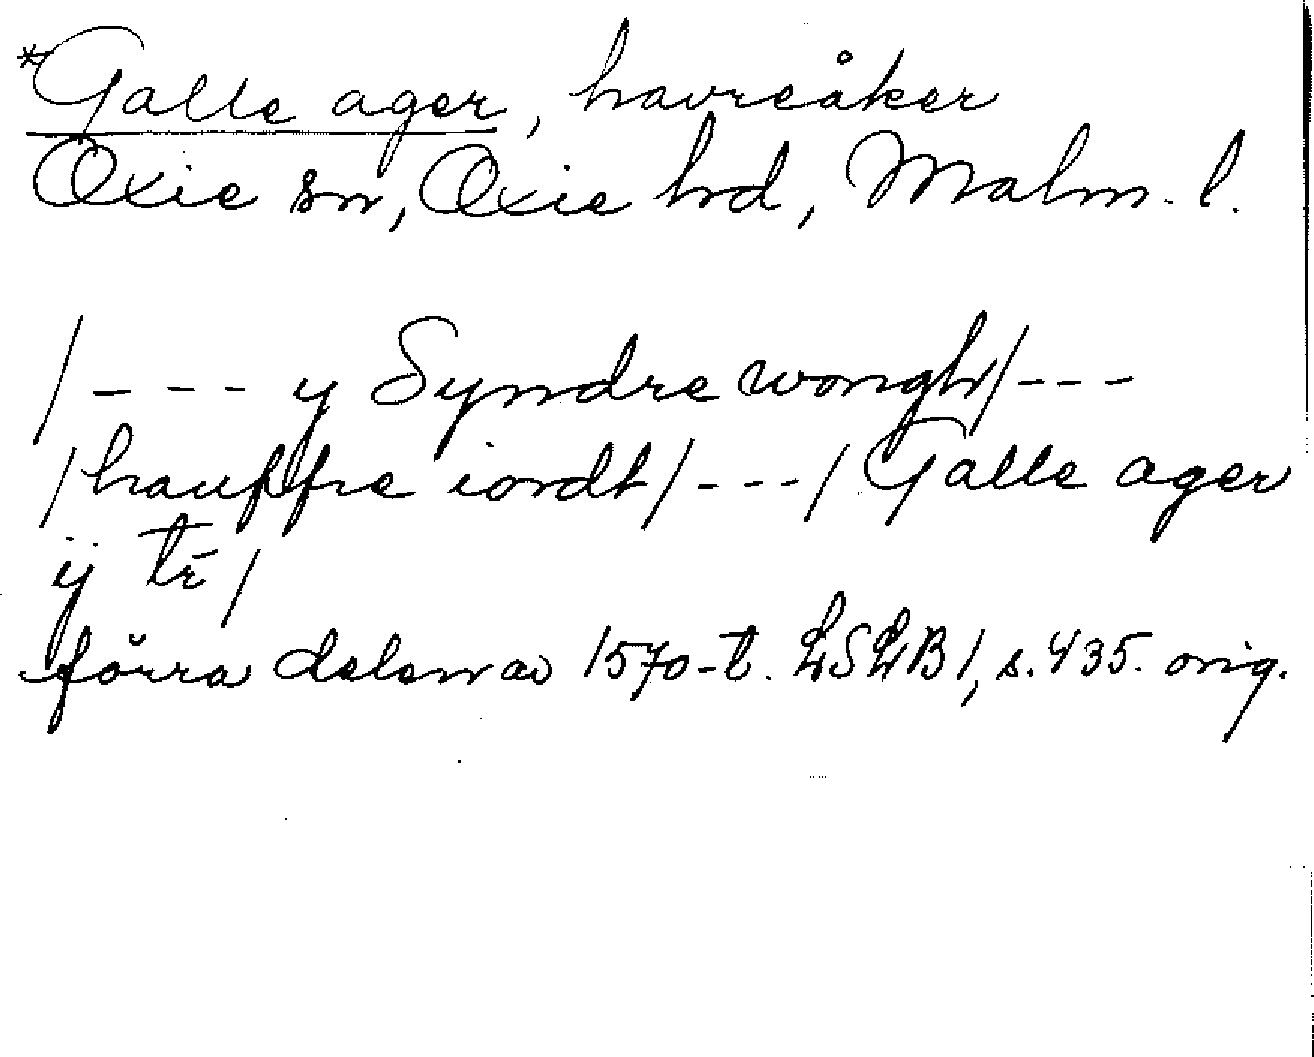 *Galle ager, havreåker
Oxie sn, Oxie hd, Malm. l.
/ - - - y Syndre wongh/ - - -
/hauffre iordt/ - - - / Galle ager
ÿ tr̄ /
förra delen av 1570-t. LSLB 1, s. 435. orig.